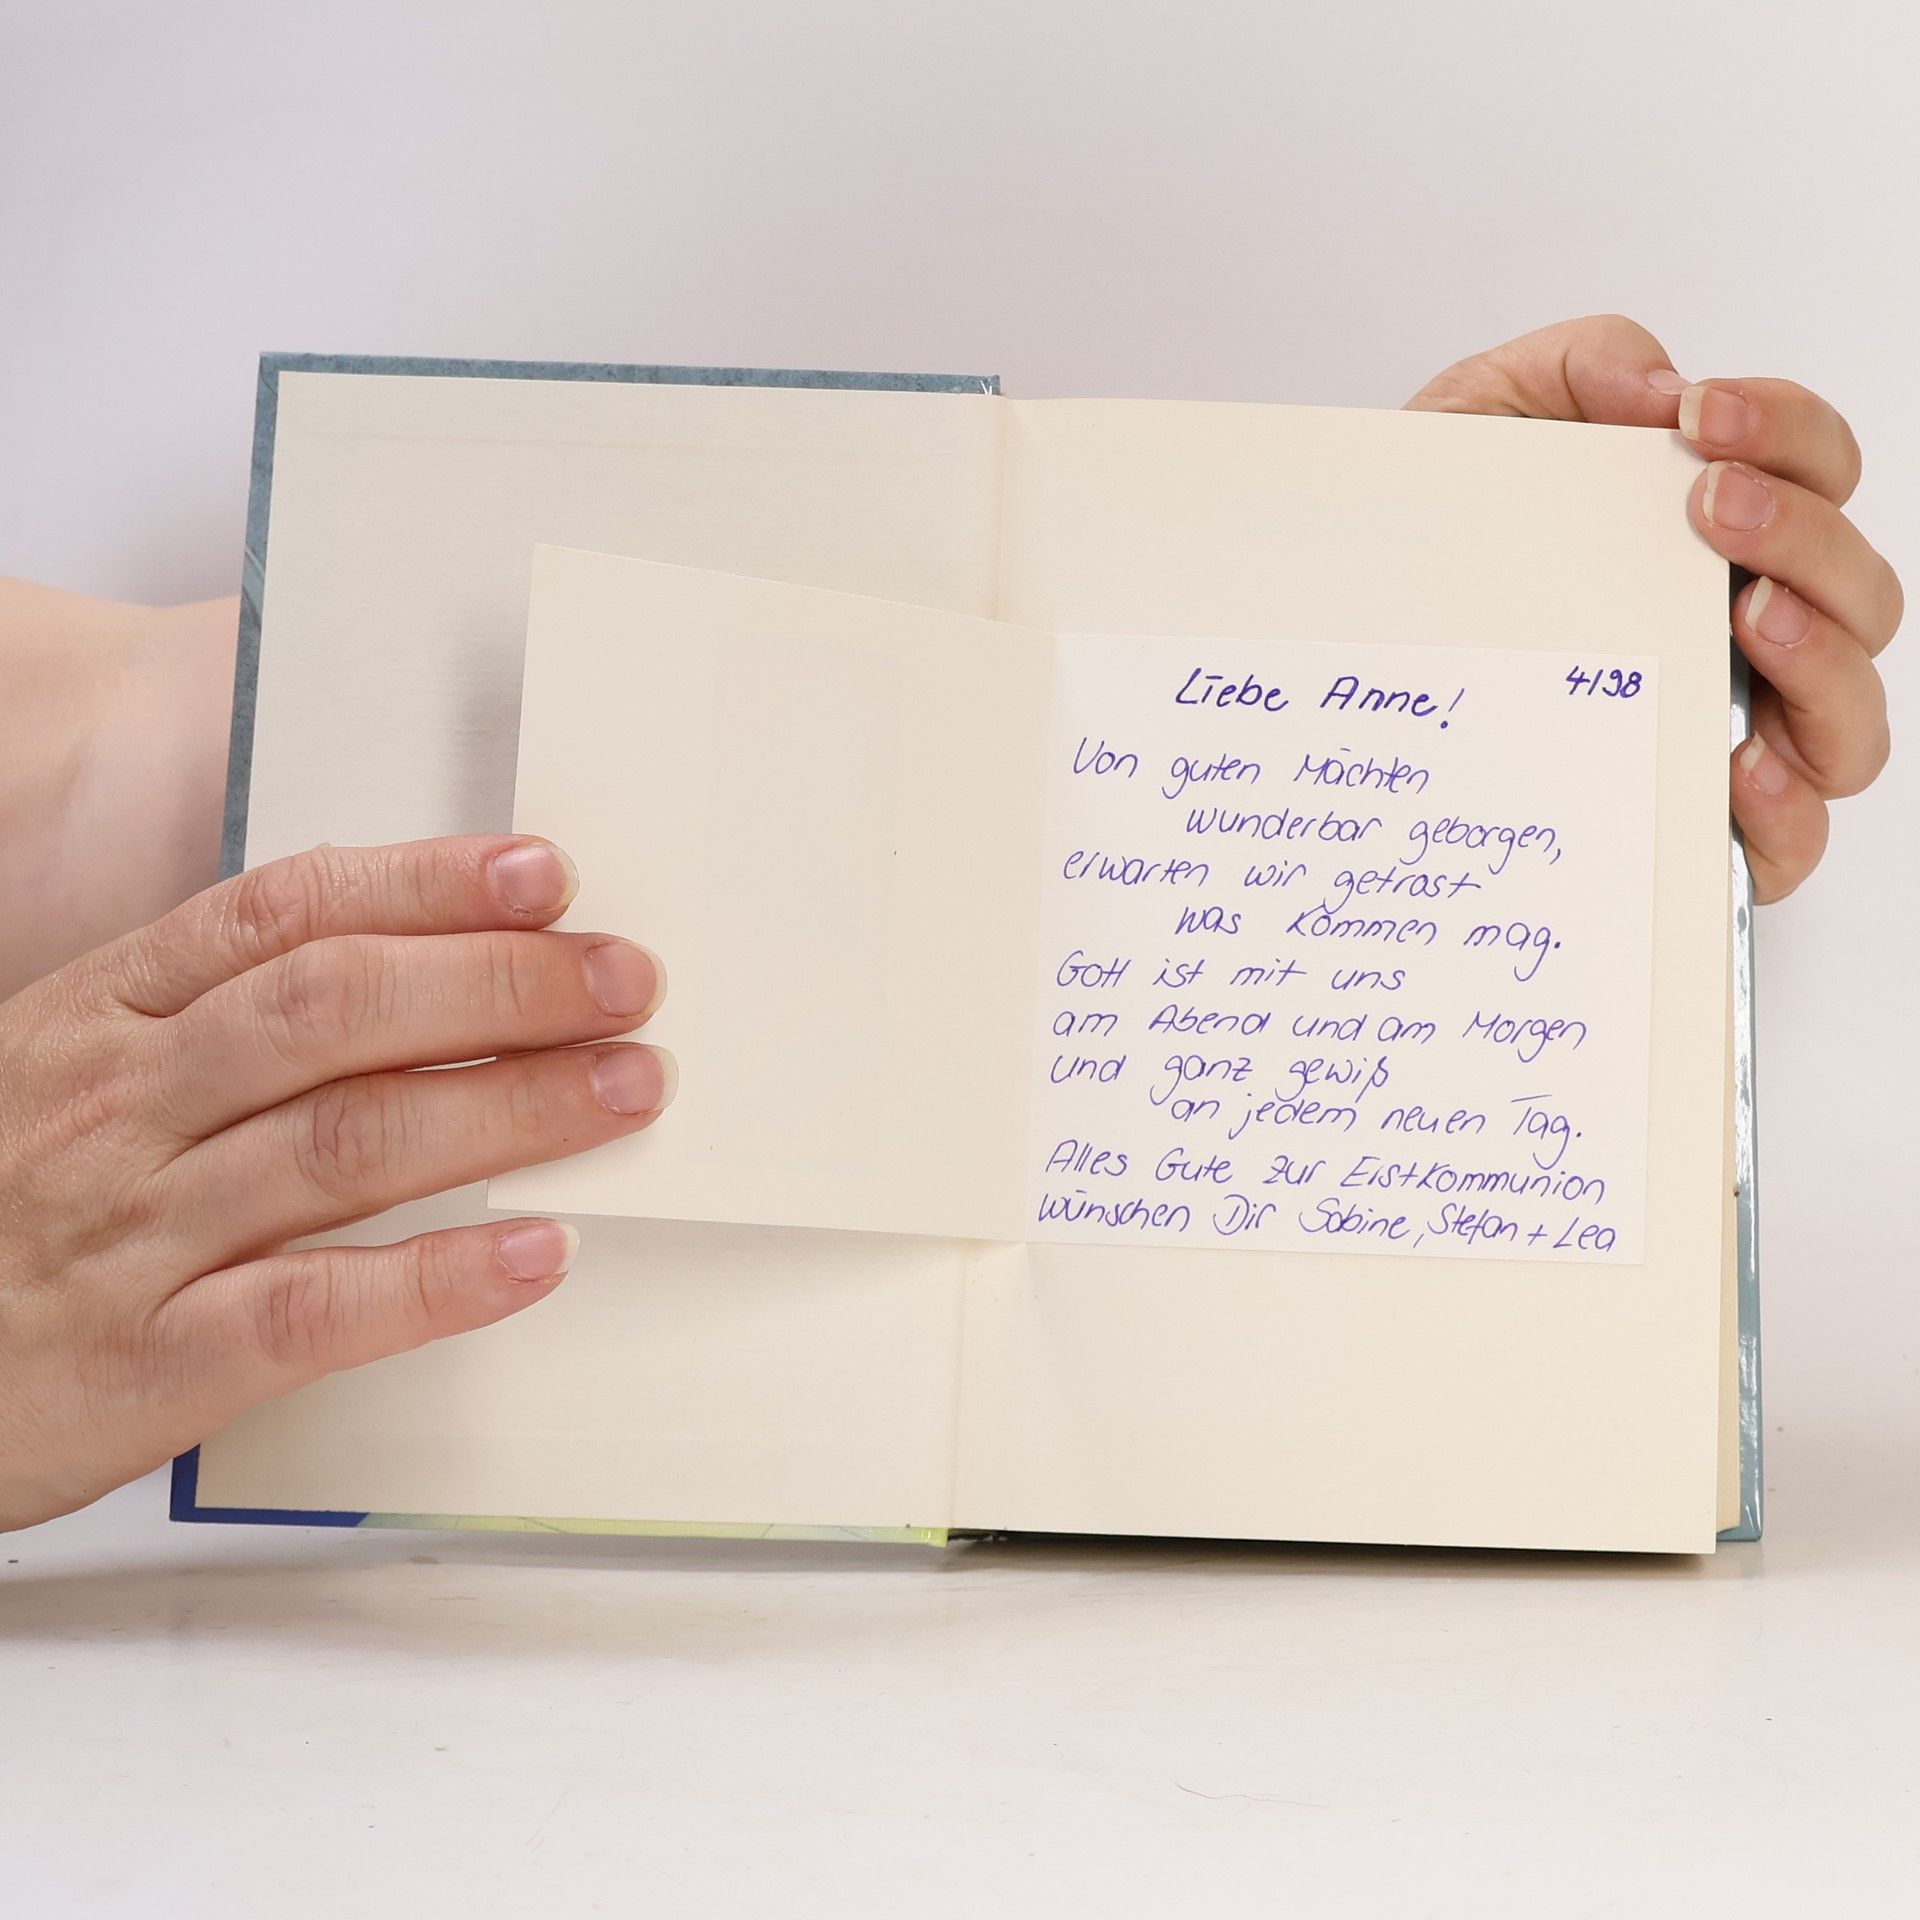 4/98
Liebe Anne!
Von guten Mächten
wunderbar geborgen,
erwarten wir getrost
was kommen mag.
Gott ist mit uns
am Abend und am Morgen
und ganz gewiß
an jedem neuen Tag.
Alles Gute zur Erstkommunion
wünschen Dir Sabine, Stefan + Lea